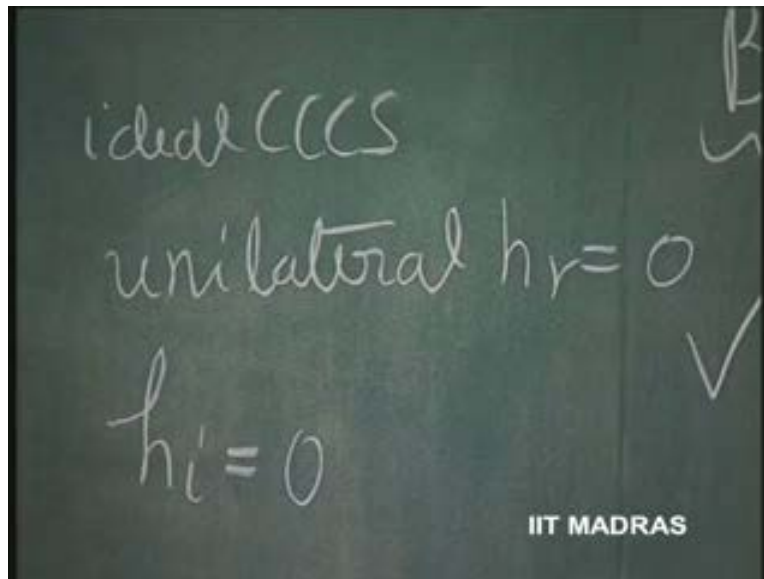 B
ideal CCCS
unilateral hr = 0
hi = 0
IIT MADRAS